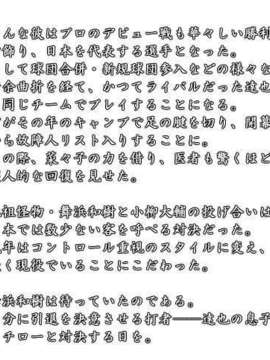 んな彼はプロのデビュー戦も華々しい勝利
飾り、日本を代表する選手となった。
して球団合併・新規球団参入などの様々な
余曲折を経て、かつてライバルだった達也
同じチームでプレイすることになる。
がその年のキャンプで足の腱を切り、開幕
ら故障人リスト入りすることに。
の際、菜々子の力を借り、医者も驚くほど
人的な回復を見せた。
祖怪物・舞浜和樹と小柳大輔の投げ合いは
本では数少ない客を呼べる対決だった。
年はコントロール重視のスタイルに変え、
く現役でいることにこだわった。
浜和樹は待っていたのである。
分に引退を決意させる打者――達也の息子
チローと対決する日を。